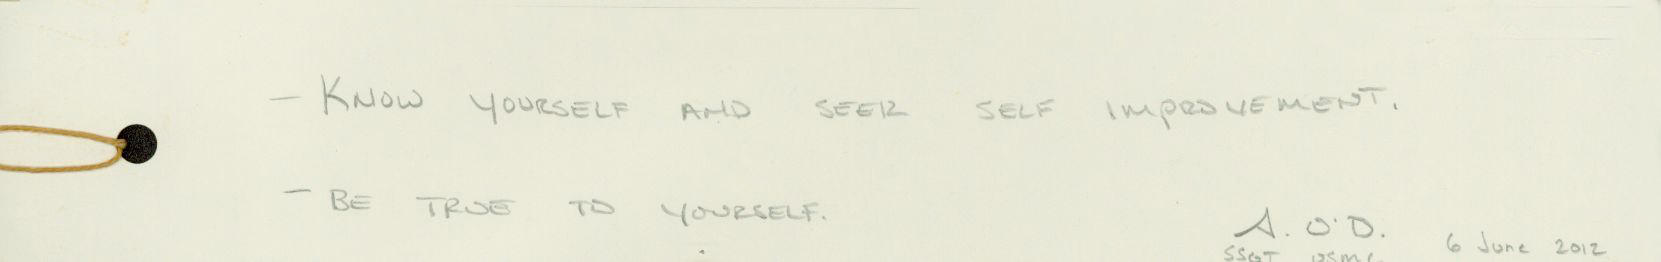 - KNOW YOURSELF AND SEEK SELF IMPROVEMENT.
- BE TRUE TO YOURSELF.
A. O'D.
SSGT USMC 6 June 2012